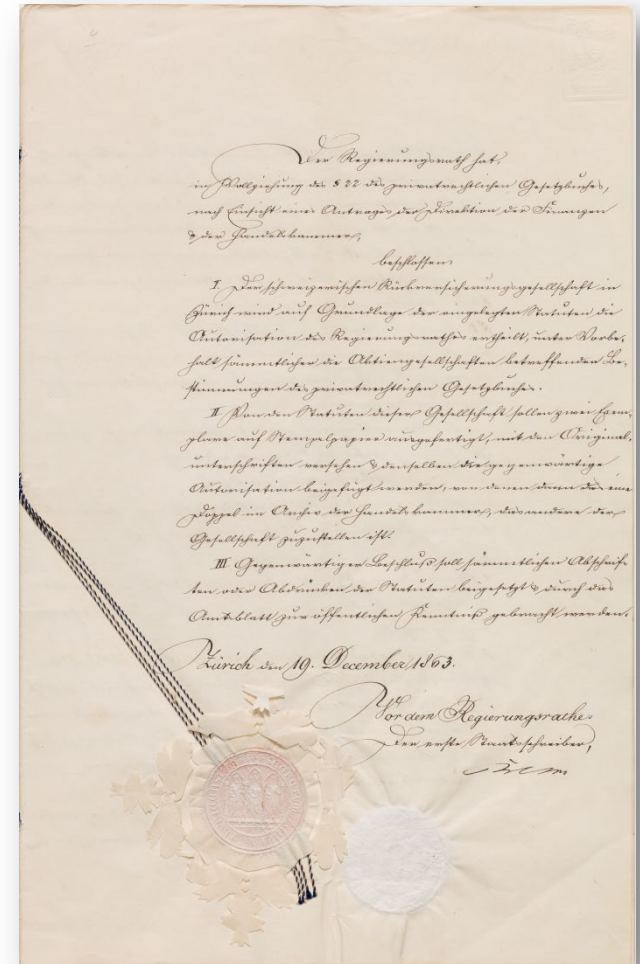 Der Regierungsrath hat,
in Vollziehung des § 22 des privatrechtlichen Gesetzbuches,
nach Einsicht eines Antrages der Direktion der Finanzen
& der Handelskammer,
beschlossen:
I. Der schweizerischen Rückversicherungsgesellschaft in
Zürich wird auf Grundlage der eingelegten Statuten die
Autorisation des Regierungsrathes ertheilt, unter Vorbe-
halt sämmtlicher die Aktiengesellschaften betreffenden Be-
stimmungen des privatrechtlichen Gesetzbuches.
II. Von den Statuten dieser Gesellschaft sollen zwei Exem-
plare auf Stempelpapier ausgefertigt, mit den Original-
unterschriften versehen & denselben die gegenwärtige
Autorisation beigefügt werden, von denen dann das eine
Doppel im Archiv der Handelskammer, das andere der
Gesellschaft zuzustellen ist.
III. Gegenwärtiger Beschluß soll sämmtlichen Abschrif-
ten oder Abdrücken der Statuten beigesetzt & durch das
Amtsblatt zur öffentlichen Kenntniß gebracht werden.
Zürich den 19. December 1863.
Vor dem Regierungsrathe
Der erste Staatsschreiber,